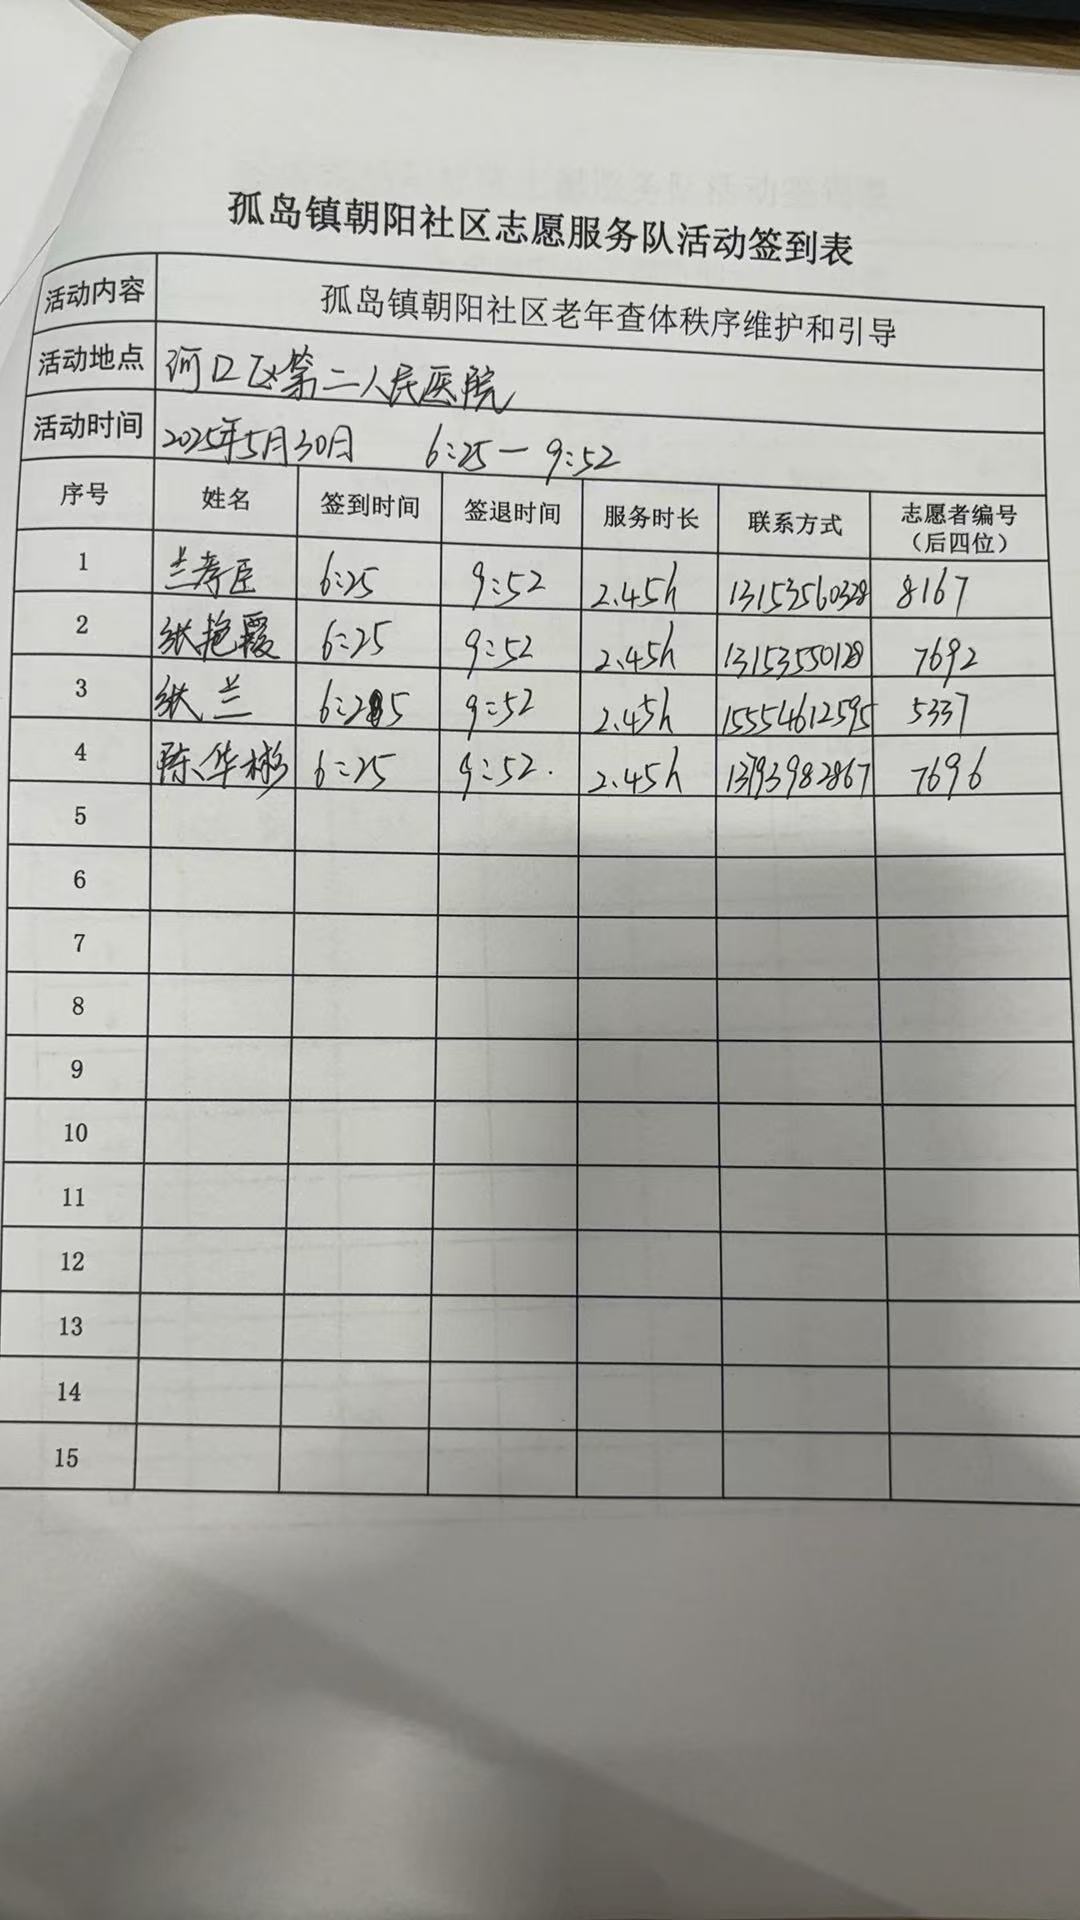 孤岛镇朝阳社区志愿服务队活动签到表
活动内容 孤岛镇朝阳社区老年查体秩序维护和引导
活动地点 河口区第二人民医院
活动时间 2025年5月30日 6:25—9:52
序号 姓名 签到时间 签退时间 服务时长 联系方式 志愿者编号（后四位）
1 兰寿臣 6:25 9:52 2.45h 13153560328 8167
2 张艳霞 6:25 9:52 2.45h 13153550128 7692
3 张兰 6:25 9:52 2.45h 15554612595 5337
4 陈华彬 6:25 9:52. 2.45h 13793982867 7696
5
6
7
8
9
10
11
12
13
14
15